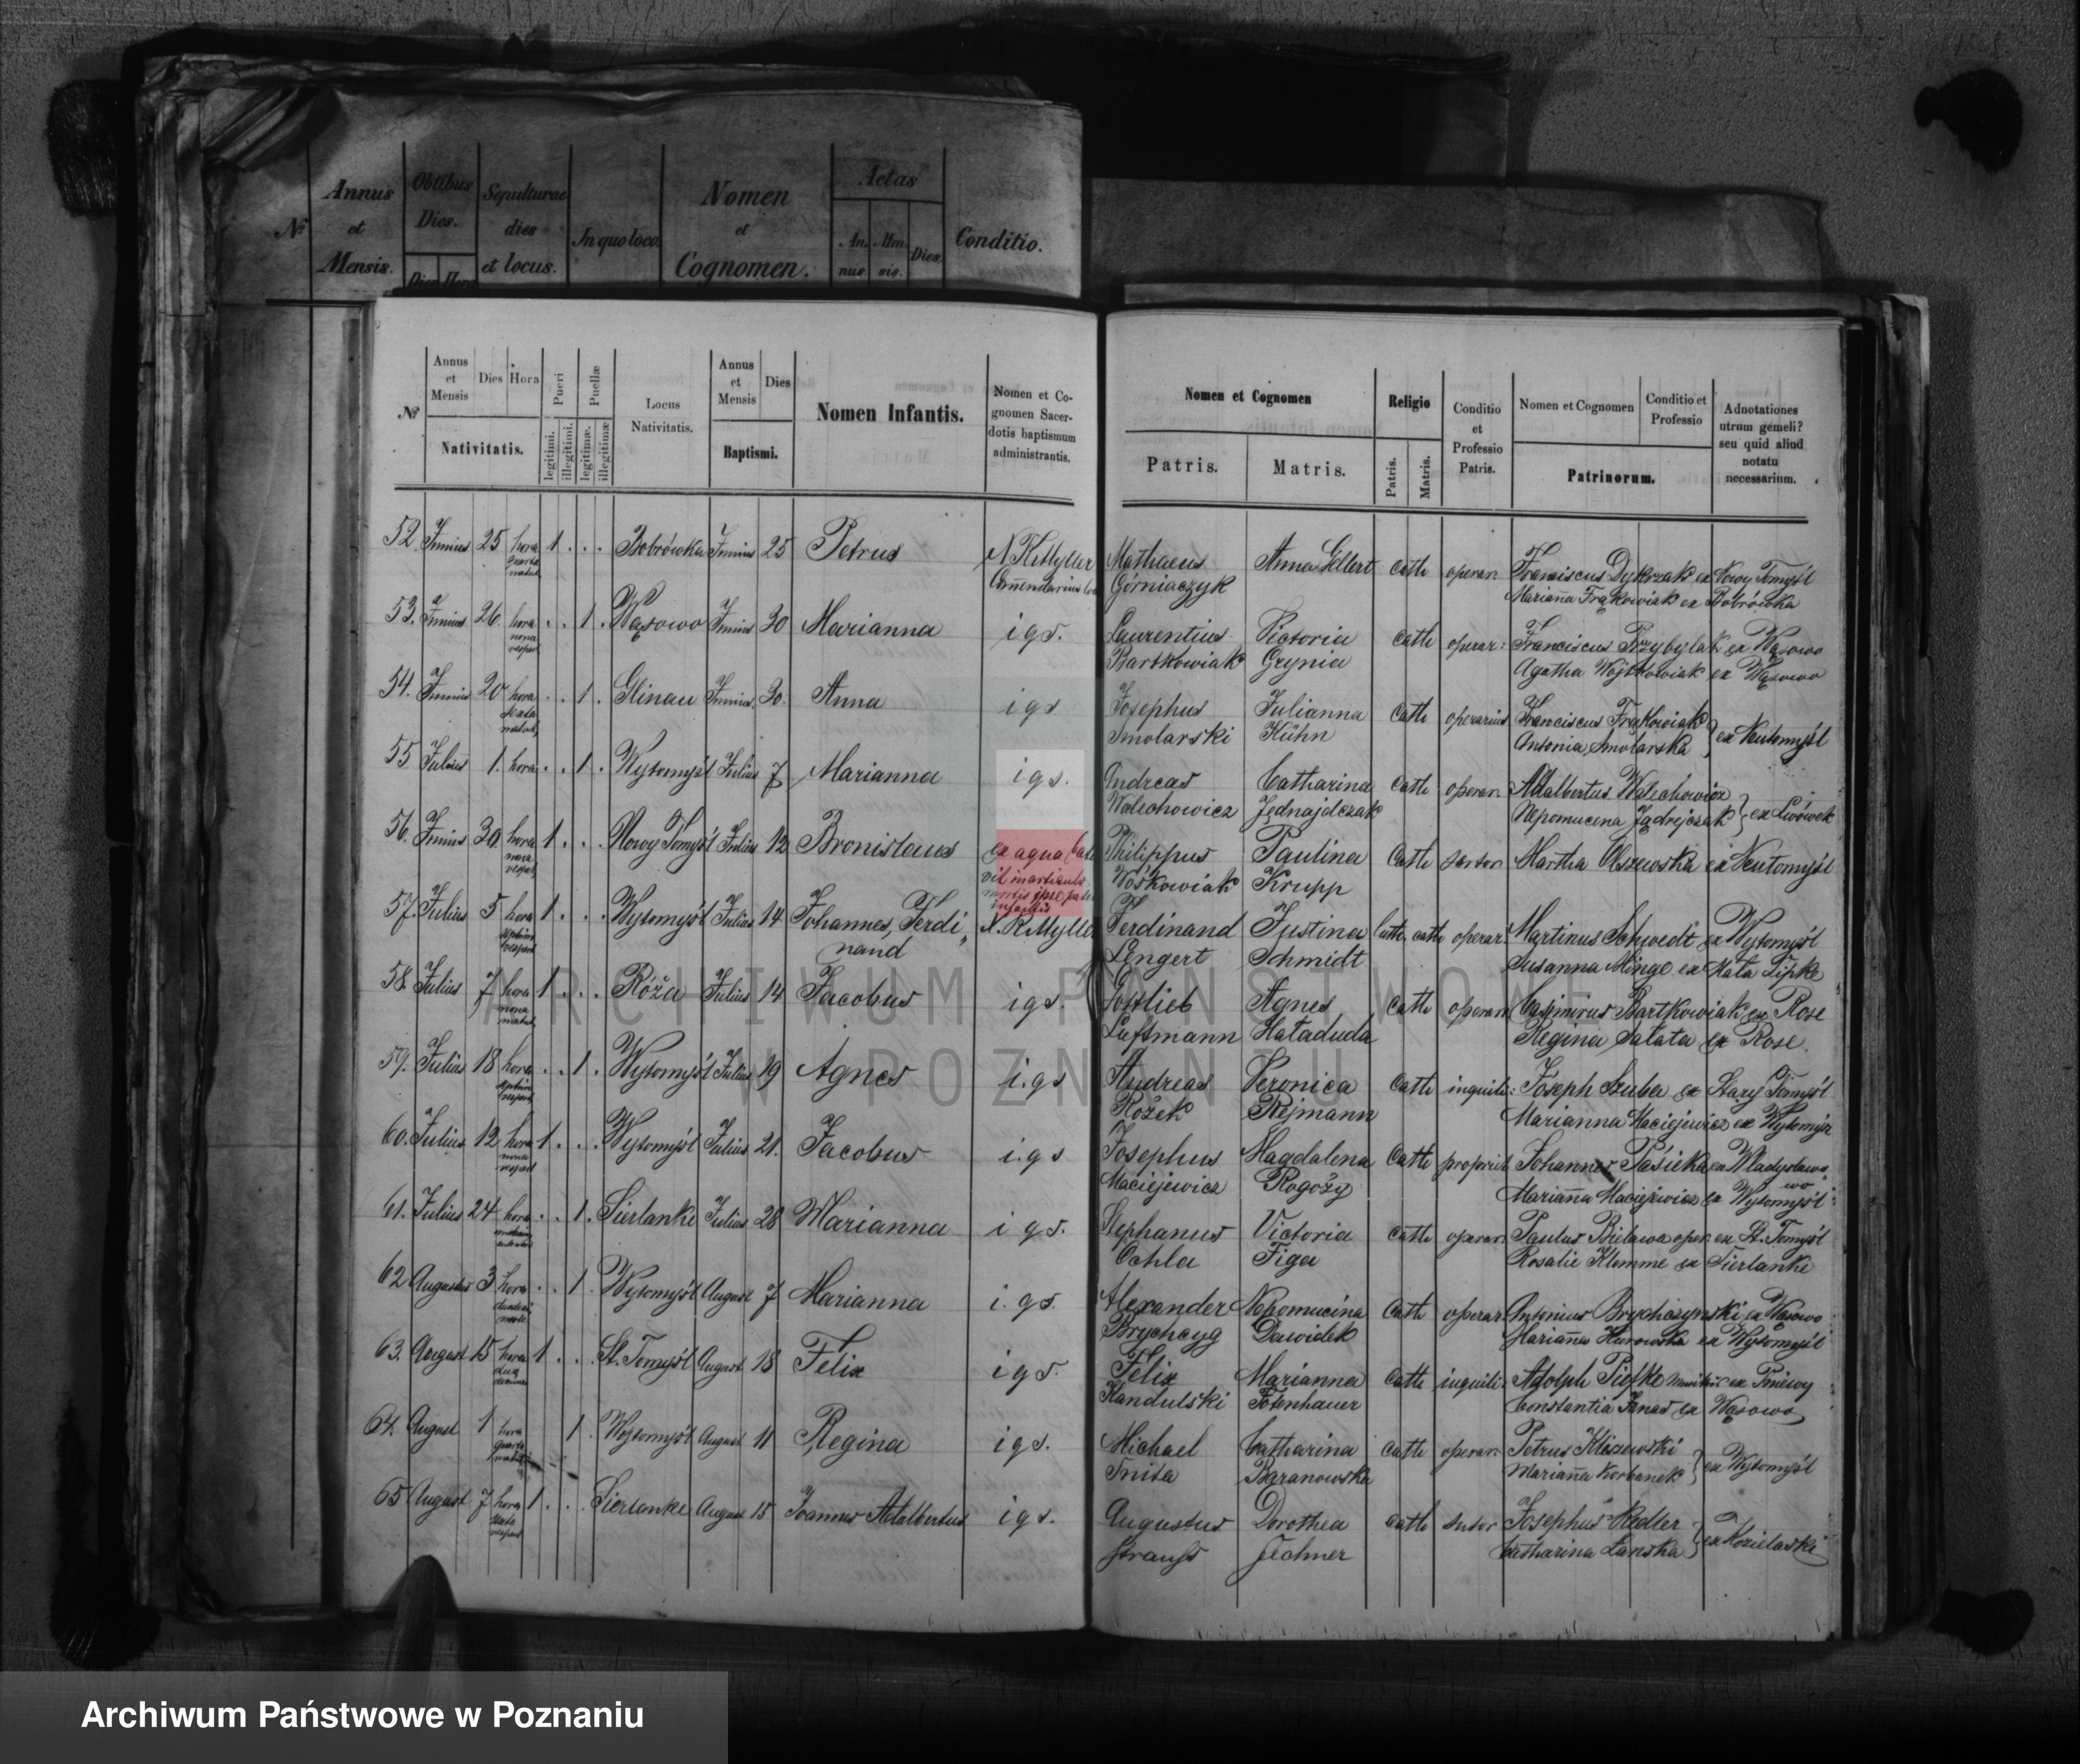 Nº
Annus et Mensis.
Obitibus Dies.
Sepulturae dies et locus.
In quo loco
Nomen et Cognomen.
Aetas
An. nus
Men. sis.
Dies.
Conditio.
Nº
Annus et Mensis
Dies
Hora
Nativitatis.
Pueri
legitimi.
illegitimi.
Puellæ
legitimæ.
illegitimæ
Locus Nativitatis.
Annus et Mensis
Dies
Baptismi.
Nomen Infantis.
Nomen et Co-
gnomen Sacer-
dotis baptismum
administrantis.
Nomen et Cognomen
Patris.
Matris.
Religio
Patris.
Matris.
Conditio et Professio Patris.
Nomen et Cognomen
Conditio et Professio
Patrinorum.
Adnotationes
utrum gemeli?
seu quid aliud
notatu
necessarium.
52. Junius 25 hora 1 . . . Bobrówka Junius 25 Petrus Mathaeus Anna Gellert cath operar. Franciscus Dykczak ex Nowy Tomyśl
Górniaczyk Marianna Frąkowiak ex Bobrówka
53. Junius 26 hora nona vesper . . 1 . Wąsowo Junius 30 Marianna i g s. Laurentius Victoria cath operar: Franciscus Przybylak ex Wąsowo
Bartkowiak Grynia Agatha Wojtkowiak ex Wąsowo
54. Junius 20 hora sexta . . 1 . Glinau Junius 30. Anna i g s Josephus Julianna cath operarius Franciscus Frąkowiak
Smolarski Kühn Antonia Smolarska } ex Neutomyśl
55 Julius 1. hora . . 1 . Wytomyśl Julius 7 Marianna i g s. Andreas Catharina cath operar. Adalbertus Walechowicz
Walechowicz Jędrajdczak Nepomucena Jądrejczak } ex Lwówek
56. Junius 30 hora nona 1 . . . Nowy Tomyśl Julius 12 Bronislaus ex aqua Philippus Paulina cath sartor Martha Olszewska ex Neutomyśl
Wośkowiak Krupp
57. Julius 5 hora 1 . . . Wytomyśl Julius 14 Johannes, Ferdi Ferdinand Justina cath. cath operar. Martinus Schwedt ex Wytomyśl
nand Lengert Schmidt Susanna Minge ex Kata Lipke
58. Julius 7 hora nona 1 . . . Róża Julius 14 Jacobus i g s. Gottlieb Agnes cath operar Casimirus Bartkowiak ex Rose
Luftmann Hataduda Regina Sałata ex Rose.
59. Julius 18 hora . . 1 . Wytomyśl Julius 19 Agnes i. g s Andreas Veronica cath inquili: Joseph Szuba ex Stary Tomyśl
Rożek Rejmann Marianna Maciejewicz ex Wytomyśl
60. Julius 12 hora nona 1 . . . Wytomyśl Julius 21. Jacobus i. g s Josephus Magdalena cath propriet Johannes Pasieka ex Władysławo
wo
Maciejewicz Rogoży Marianna Maciejewicz ex Wytomyśl
61. Julius 24 hora . . 1 . Sierlanke Julius 28 Marianna i g s. Stephanus Victoria cath operar. Paulus Bielawa oper. ex St. Tomyśl
Ochla Figa Rosalie Klemme ex Sierlanke
62 Augustus 3 hora . . 1 . Wytomyśl August 7 Marianna i. g s. Alexander Nepomucina cath operar Antonius Brychczynski ex Wąsowo
Brychcyg Dawidek Marianna Kurowska ex Wytomyśl
63. August 15 hora 1 . . . St. Tomyśl August 18 Felix i g s. Felix Marianna cath inquili: Adolph Piefke ex Pniewy
Kandulski Fotenhauer Constantia Janas ex Wąsowo
64. August 1 hora quarta 1 . Wytomyśl August 11 Regina i g s. Michael Catharina cath operar. Petrus Kliszewski
Śnita Baranowska Marianna Korbanek } ex Wytomyśl
65 August 7 hora sexta 1 . . . Sierlanke August 15 Joannes Adalbertus i g s. Augustus Dorothea cath sutor Josephus Redler
Strauss Jechner Catharina Łanska } ex Kozielaski
ARCHIWUM PAŃSTWOWE
W POZNANIU
Archiwum Państwowe w Poznaniu